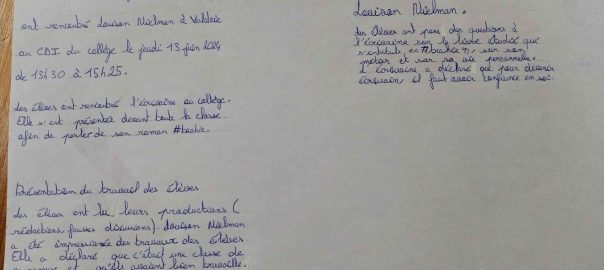 ont rencontré Louison Nielman à Valdoie
au CDI du collège le jeudi 13 juin 2024
de 13h30 à 15h25.
Les élèves ont rencontré l'écrivaine au collège.
Elle s'est présentée devant toute la classe
afin de parler de son roman #bestie.
Présentation du travail des élèves
Les élèves ont lu leurs productions (
rédactions, fausses discussions). Louison Nielman
a été impressionnée des travaux des élèves.
Elle a déclaré que c'était une classe de
et qu'ils avaient bien travaillé.
Louison Nielman.
Les élèves ont posé des questions à
l'écrivaine sur le livre étudié que
s'intitule, sur son
métier et sur sa vie personnelle.
L'écrivaine a déclaré que pour devenir
écrivain, il faut avoir confiance en soi.